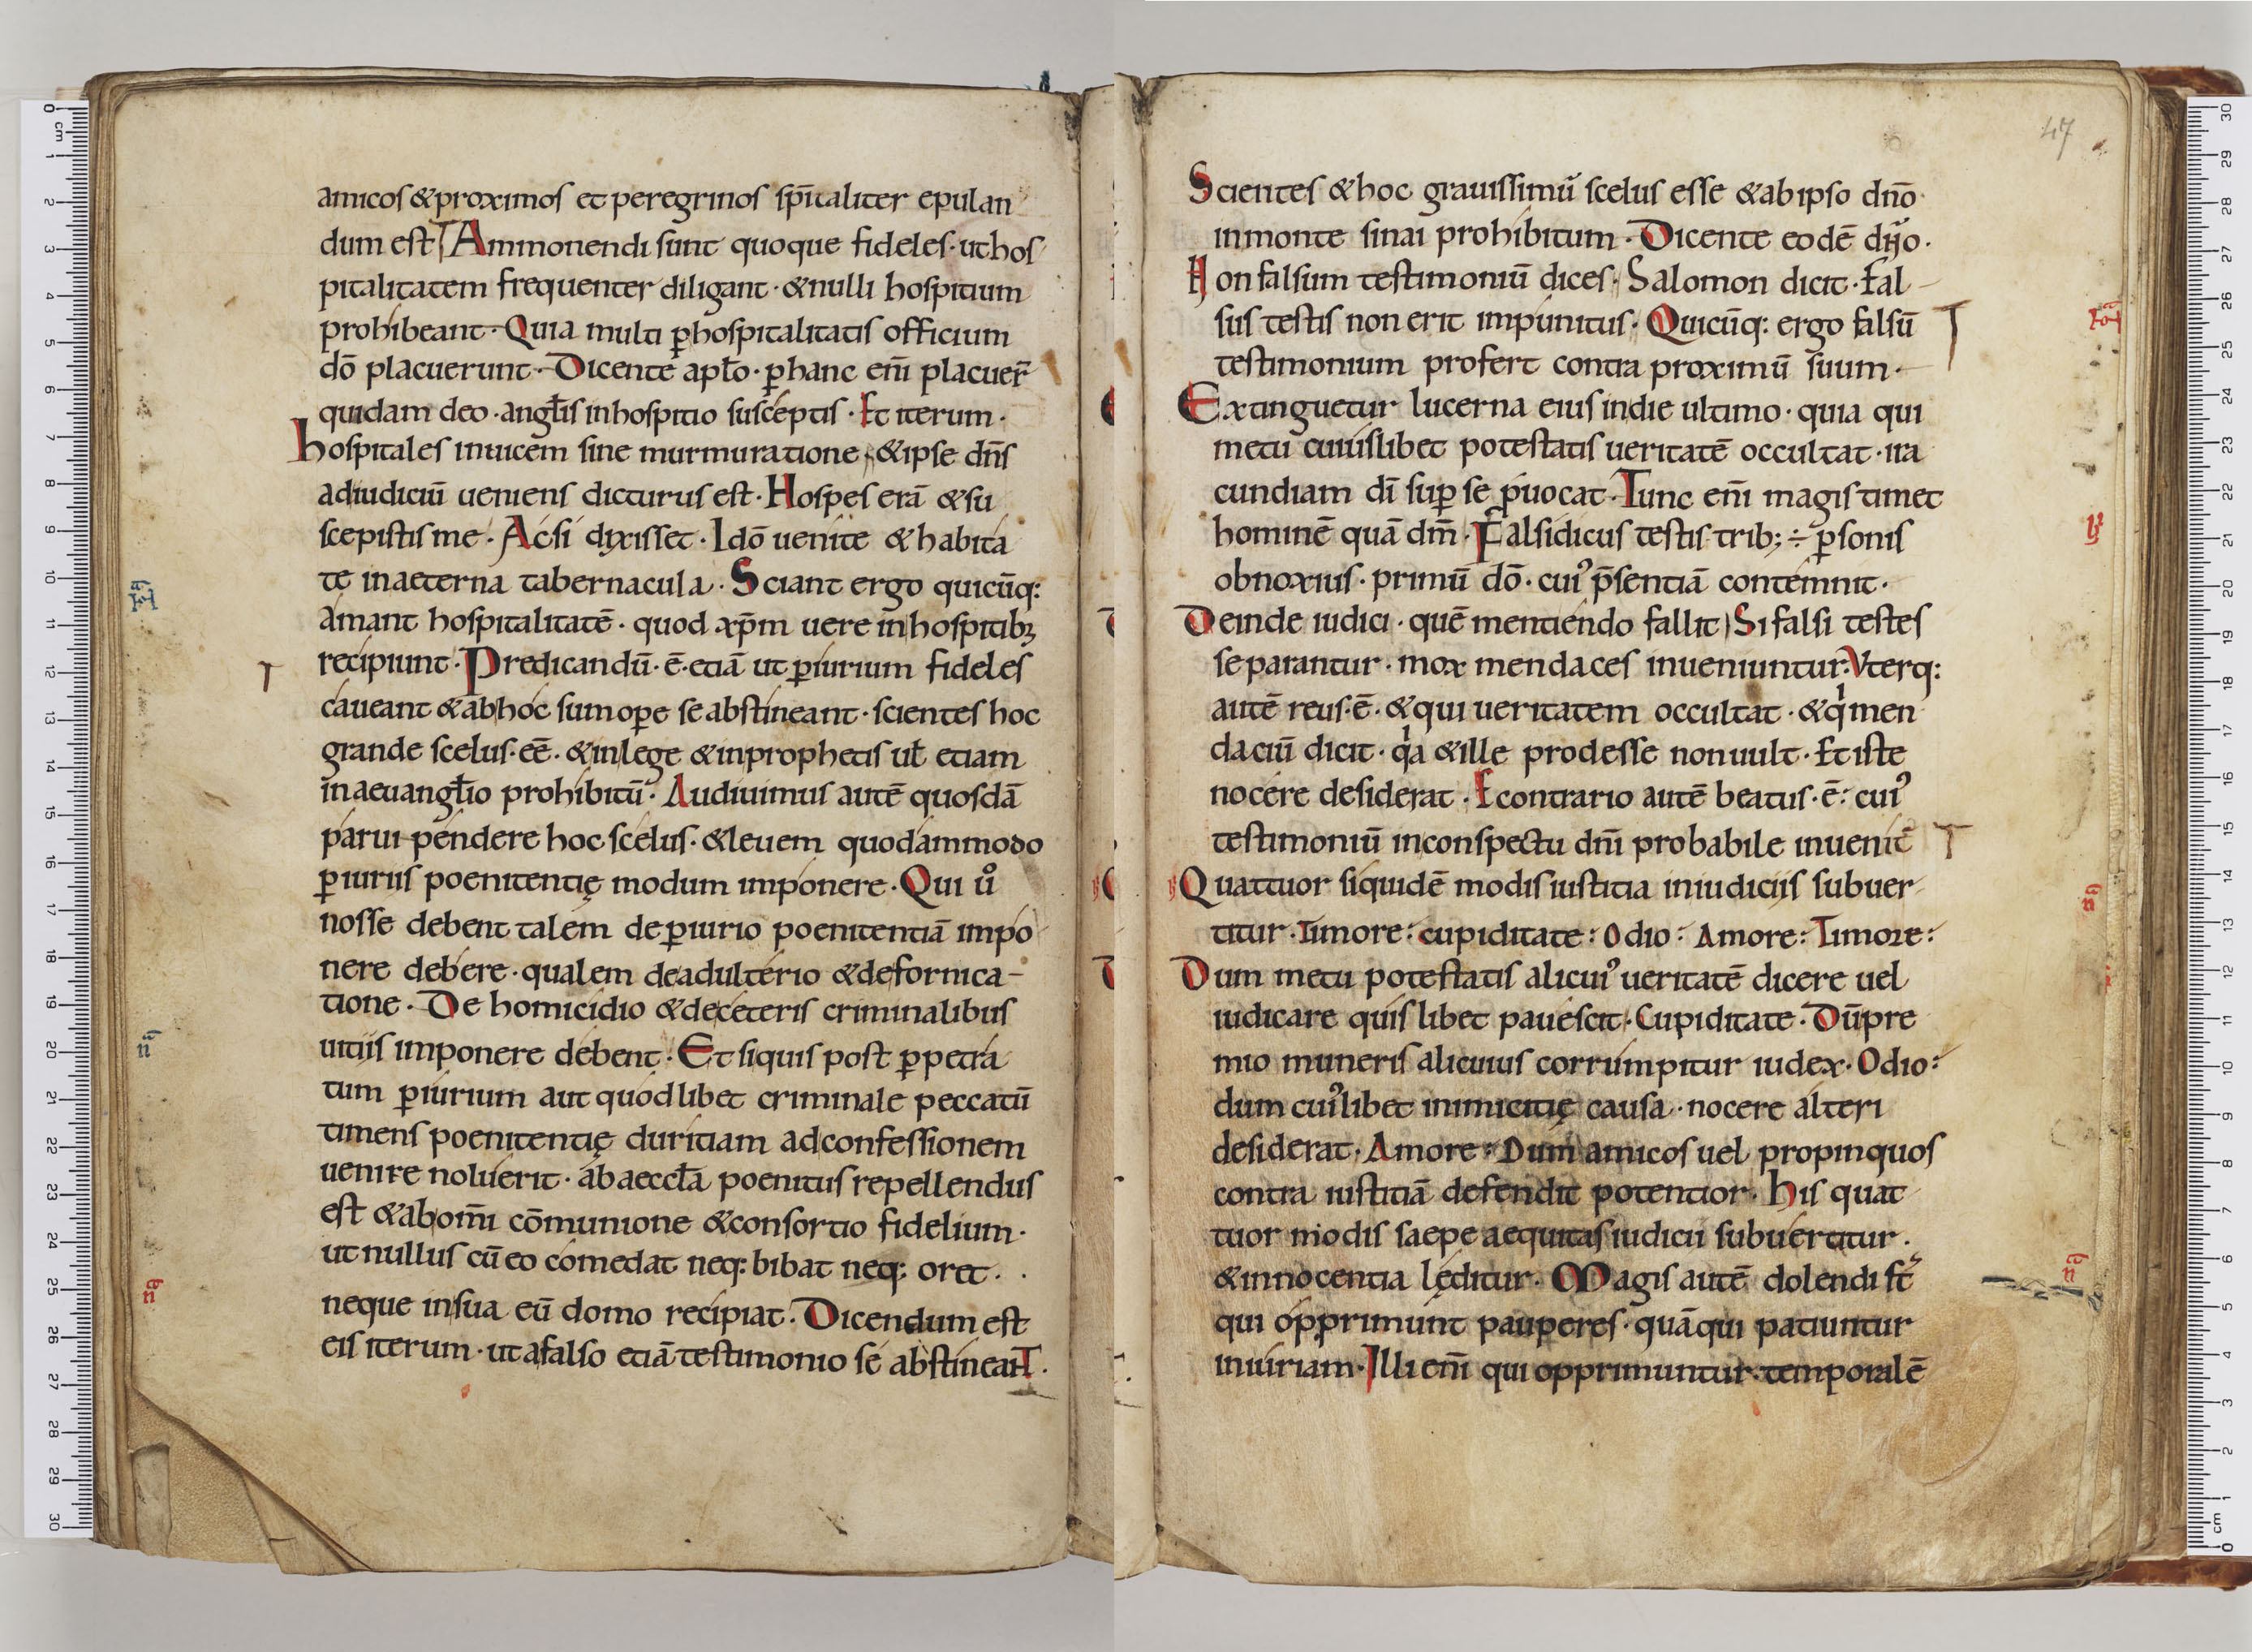 amicos &proximos et peregrinos sp̄italiter epulan
dum est Ammonendi sunt quoque fideles· ut hos
pitalitatem frequenter diligant· &nulli hospitium
prohibeant· Quia multi ꝑ hospitalitatis officium
dō placuerunt· Dicente apło· ꝑ hanc em̄ placuer̄
quidam deo· angłis inhospitio susceptis· Et iterum·
hospitales inuicem sine murmuratione· &ipse dn̄s
adiudiciū ueniens dicturus est· Hospes erā &su
scepistis me· Acsi dixisset· Idō uenite &habita
te inaeterna tabernacula· Sciant ergo quicūq:
amant hospitalitatē· quod xp̄m uere inhospitibꝫ
recipiunt· Predicandū· ē· etiā ut ꝑiurium fideles
caueant &abhoc sumoꝑe se abstineant· scientes hoc
grande scelus· eē· &inlege &inprophetis uł etiam
inaeuangłio prohibitū· Audiuimus autē quosdā
parui pendere hoc scelus· &leuem quodammodo
ꝑiuriis poenitentię modum imponere· Qui uͦ
nosse debent talem de ꝑiurio poenitentiā impo
nere debere· qualem deadulterio &defornica-
tione· De homicidio &deceteris criminalibus
uitiis imponere debent· Et siquis post ꝑpetra
tum ꝑiurium aut quodlibet criminale peccatū
timens poenitentię duritiam adconfessionem
uenire noluerit· ab aeccła poenitus repellendus
est &abom̄i cōmunione &consortio fidelium·
ut nullus cū eo comedat neq: bibat neq: oret·
neque insua eū domo recipiat· Dicendum est
eis iterum· ut afalso etiā testimonio se abstineant·
47
Scientes &hoc grauissimū scelus esse &ab ipso dn̄o
inmonte sinai prohibitum· Dicente eodē dn̄o·
Non falsum testimoniū dices· Salomon dicit· Fal
sus testis non erit impunitus· Quicūq: ergo falsū
testimonium profert contra proximū suum·
Extinguetur lucerna eius indie ultimo· quia qui
metu cuiuslibet potestatis ueritatē occultat· ira
cundiam dī suꝑ se ꝓuocat· Tunc em̄ magis timet
hominē quā dm̄· Falsidicus testis trib; ÷ ꝑsonis
obnoxius· primū dō· cui' p̄sentiā contemnit·
Deinde iudici· quē mentiendo fallit Si falsi testes
separantur· mox mendaces inueniuntur· Vterq:
autē reus· ē· &qui ueritatem occultat· &qͥ men
daciū dicit· qͥa &ille prodesse nonuult· Et iste
nocere desiderat· Econtrario autē beatus· ē· cui'
testimoniū inconspectu dn̄i probabile inuenit̄
Quattuor siquidē modis iustitia iniudiciis subuer
titur· Timore: cupiditate: Odio: Amore: Timore:
Dum metu potestatis alicui' ueritatē dicere uel
iudicare quislibet pauescit· Cupiditate· Dū pre
mio muneris alicuius corrumpitur iudex· Odio:
dum cui'libet inimicitię causa· nocere alteri
desiderat· Amore: Dum amicos uel propinquos
contra iustitiā defendit potentior· His quat
tuor modis saepe aequitas iudicii subuertitur·
&innocentia lęditur· Magis autē dolendi st̄
qui opprimunt pauperes· quā qui patiuntur
iniuriam· Illi em̄ qui opprimuntur· temporalē